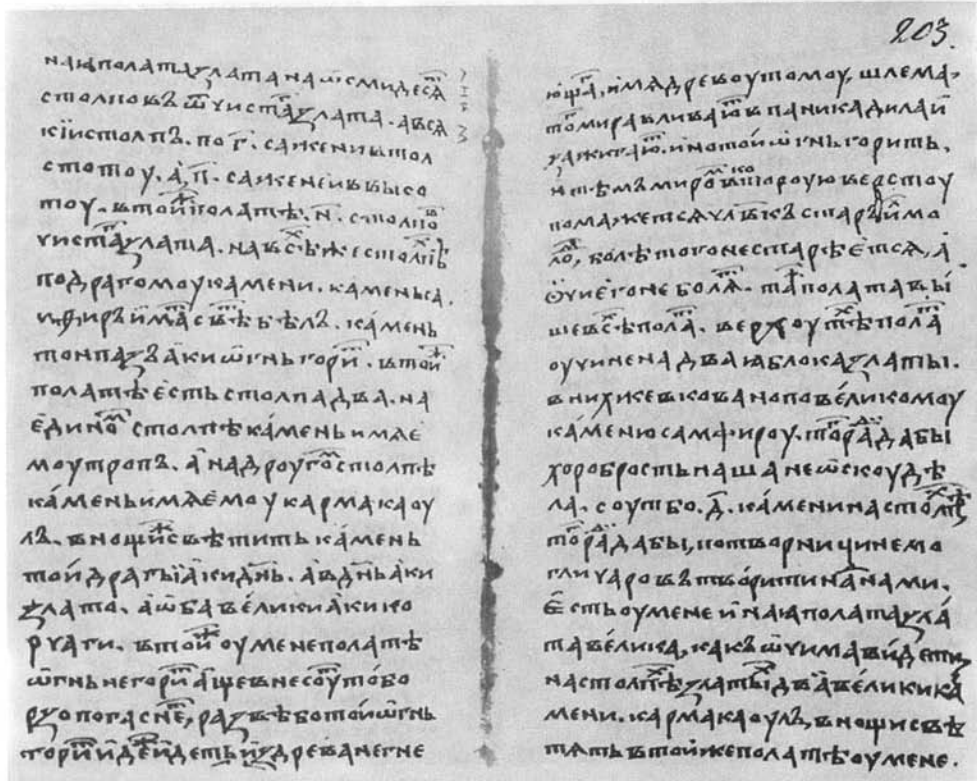 203.
наꙗ полата злата на ѿсмидесѧⷮ
столповъ ѿ чистаⷢ злата. а всѧ
кїи столпъ. по г҃. сажени в тол
стотоу. а҃. п҃. саженеи в высо
тоу. в тоиⷤ полатѣ. н҃. столпоⷡ
чистаⷢ злата. на всѣⷯ же столпѣⷯ
по драгомоу камени. камень са.
мфиръ имаⷮ свѣⷮ бѣлъ. ка́мень
тонпазъ аки ѿгнь гориⷮ. в тоиⷤ
полатѣ є҆сть столпа два. на
є҆диноⷨ столпѣ ка́мень имѧ є
моу тропъ. а҆ на дроугоⷨ столпѣ
ка́мень имѧ є҆моу кармакаоу
лъ. в нощиⷤ свѣтить ка́мень
той драгы́и а҆ки дн҃ь. а҆ в дн҃ь а҆ки
злато. а҆ ѡба вели́ки а҆ки ко
рчаги. в тоиⷤ оу мене полатѣ
ѡгнь не гориⷮ а҆ще внесоуⷮ то бо
рзо погаснеⷮ, развѣ бо той ѡгнь
гориⷮ и҆деⷤ и҆деть и҆з древа негне
ющаⷢ, имѧ древоу томоу, шлема,
тоⷢ мира вливаюⷮ в паникадила и҆
зажигаюⷮ. и҆но той ѡгнь горить,
и тѣмъ мироⷨ кⷪ второую верстоу
помажетсѧ чл҃вкъ старъ и҆лⷩ мо
лоⷣ, болѣ того не старѣє҆тсѧ, а҆
ѻчи є҆го не болѧⷮ. таⷤ полата вы́
ше всѣⷯ полаⷮ. верхоу тоѣⷤ полаⷮ
оучинена два ꙗблока златы.
в ниⷯ же вковано по вели́комоу
ка́меню самфироу. тоⷢ раⷣ дабы
хоробрость наша не ѡскоудѣ
ла. соуⷮ бо. д҃. ка́мени на столпѣⷯ,
тоⷢ раⷣ дабы, потворници не мо
гли чаровъ твори́ти наⷣ нами.
є҆сть оу мене и҆наꙗ полата зла́
та вели́ка, какъ ѡчима ви́дети,
на столпѣⷯ златыⷯ два вели́ки ка
мени. кармакаоулъ, в нощи свѣ
тѧть в той же полатѣ оу мене.